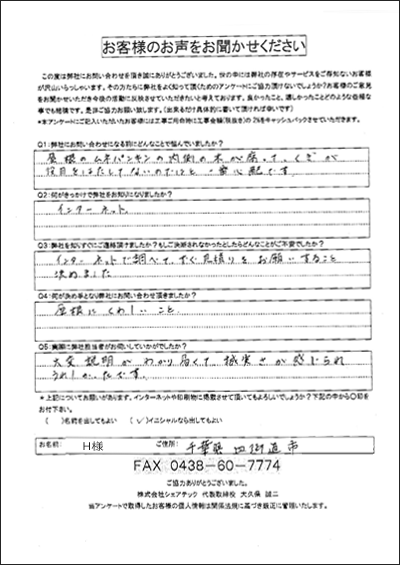 お客様のお声をお聞かせください
この度は弊社にお問い合わせを頂き誠にありがとうございました。世の中には弊社の存在やサービスをご存知ないお客様
が沢山いらっしゃいます。その方たちに弊社をよく知って頂くためのアンケートにご協力頂けないでしょうか?お客様のご意見
をお聞かせいただき今後の活動に反映させていただきたいと考えております。良かったこと、嬉しかったことどのような些細な
事でも結構です。是非ご協力お願い致します。(出来るだけ具体的に書いて頂ければ幸いです)
*本アンケートにご記入いただいたお客様には工事ご用命時に工事金額(税抜き)の2%をキャッシュバックさせていただきます。
Q1:弊社にお問い合わせになる前にどんなことで悩んでいましたか?
屋根のムネバンキンの内側の木が腐って、くぎが
役目をはたしてないのではと 心配です
Q2:何がきっかけで弊社をお知りになりましたか?
インターネット
Q3:弊社を知りすぐにご連絡頂けましたか?もしご決断されなかったとしたらどんなことがご不安でしたか?
インターネットで調べて、すぐ見積りをお願いすること
決めました
Q4:何が決め手となり弊社にお問い合わせ頂きましたか?
屋根にくわしいこと
Q5:実際に弊社担当者がお伺いしていかがでしたか?
大変説明がわかり易くて誠実さが感じられ
うれしかったです。
*上記についてお願いがあります。インターネットや印刷物に掲載させて頂いてもよろしいでしょうか?下記の中から○印を
お付け下さい。
( )名前を出してもよい (✓)イニシャルなら出してもよい
お名前: H様 ご住所: 千葉県四街道市
FAX 0438-60-7774
ご協力ありがとうございました。
株式会社シェアテック 代表取締役 大久保 誠二
当アンケートで取得したお客様の個人情報は関係法規に基づき厳正に管理いたします。